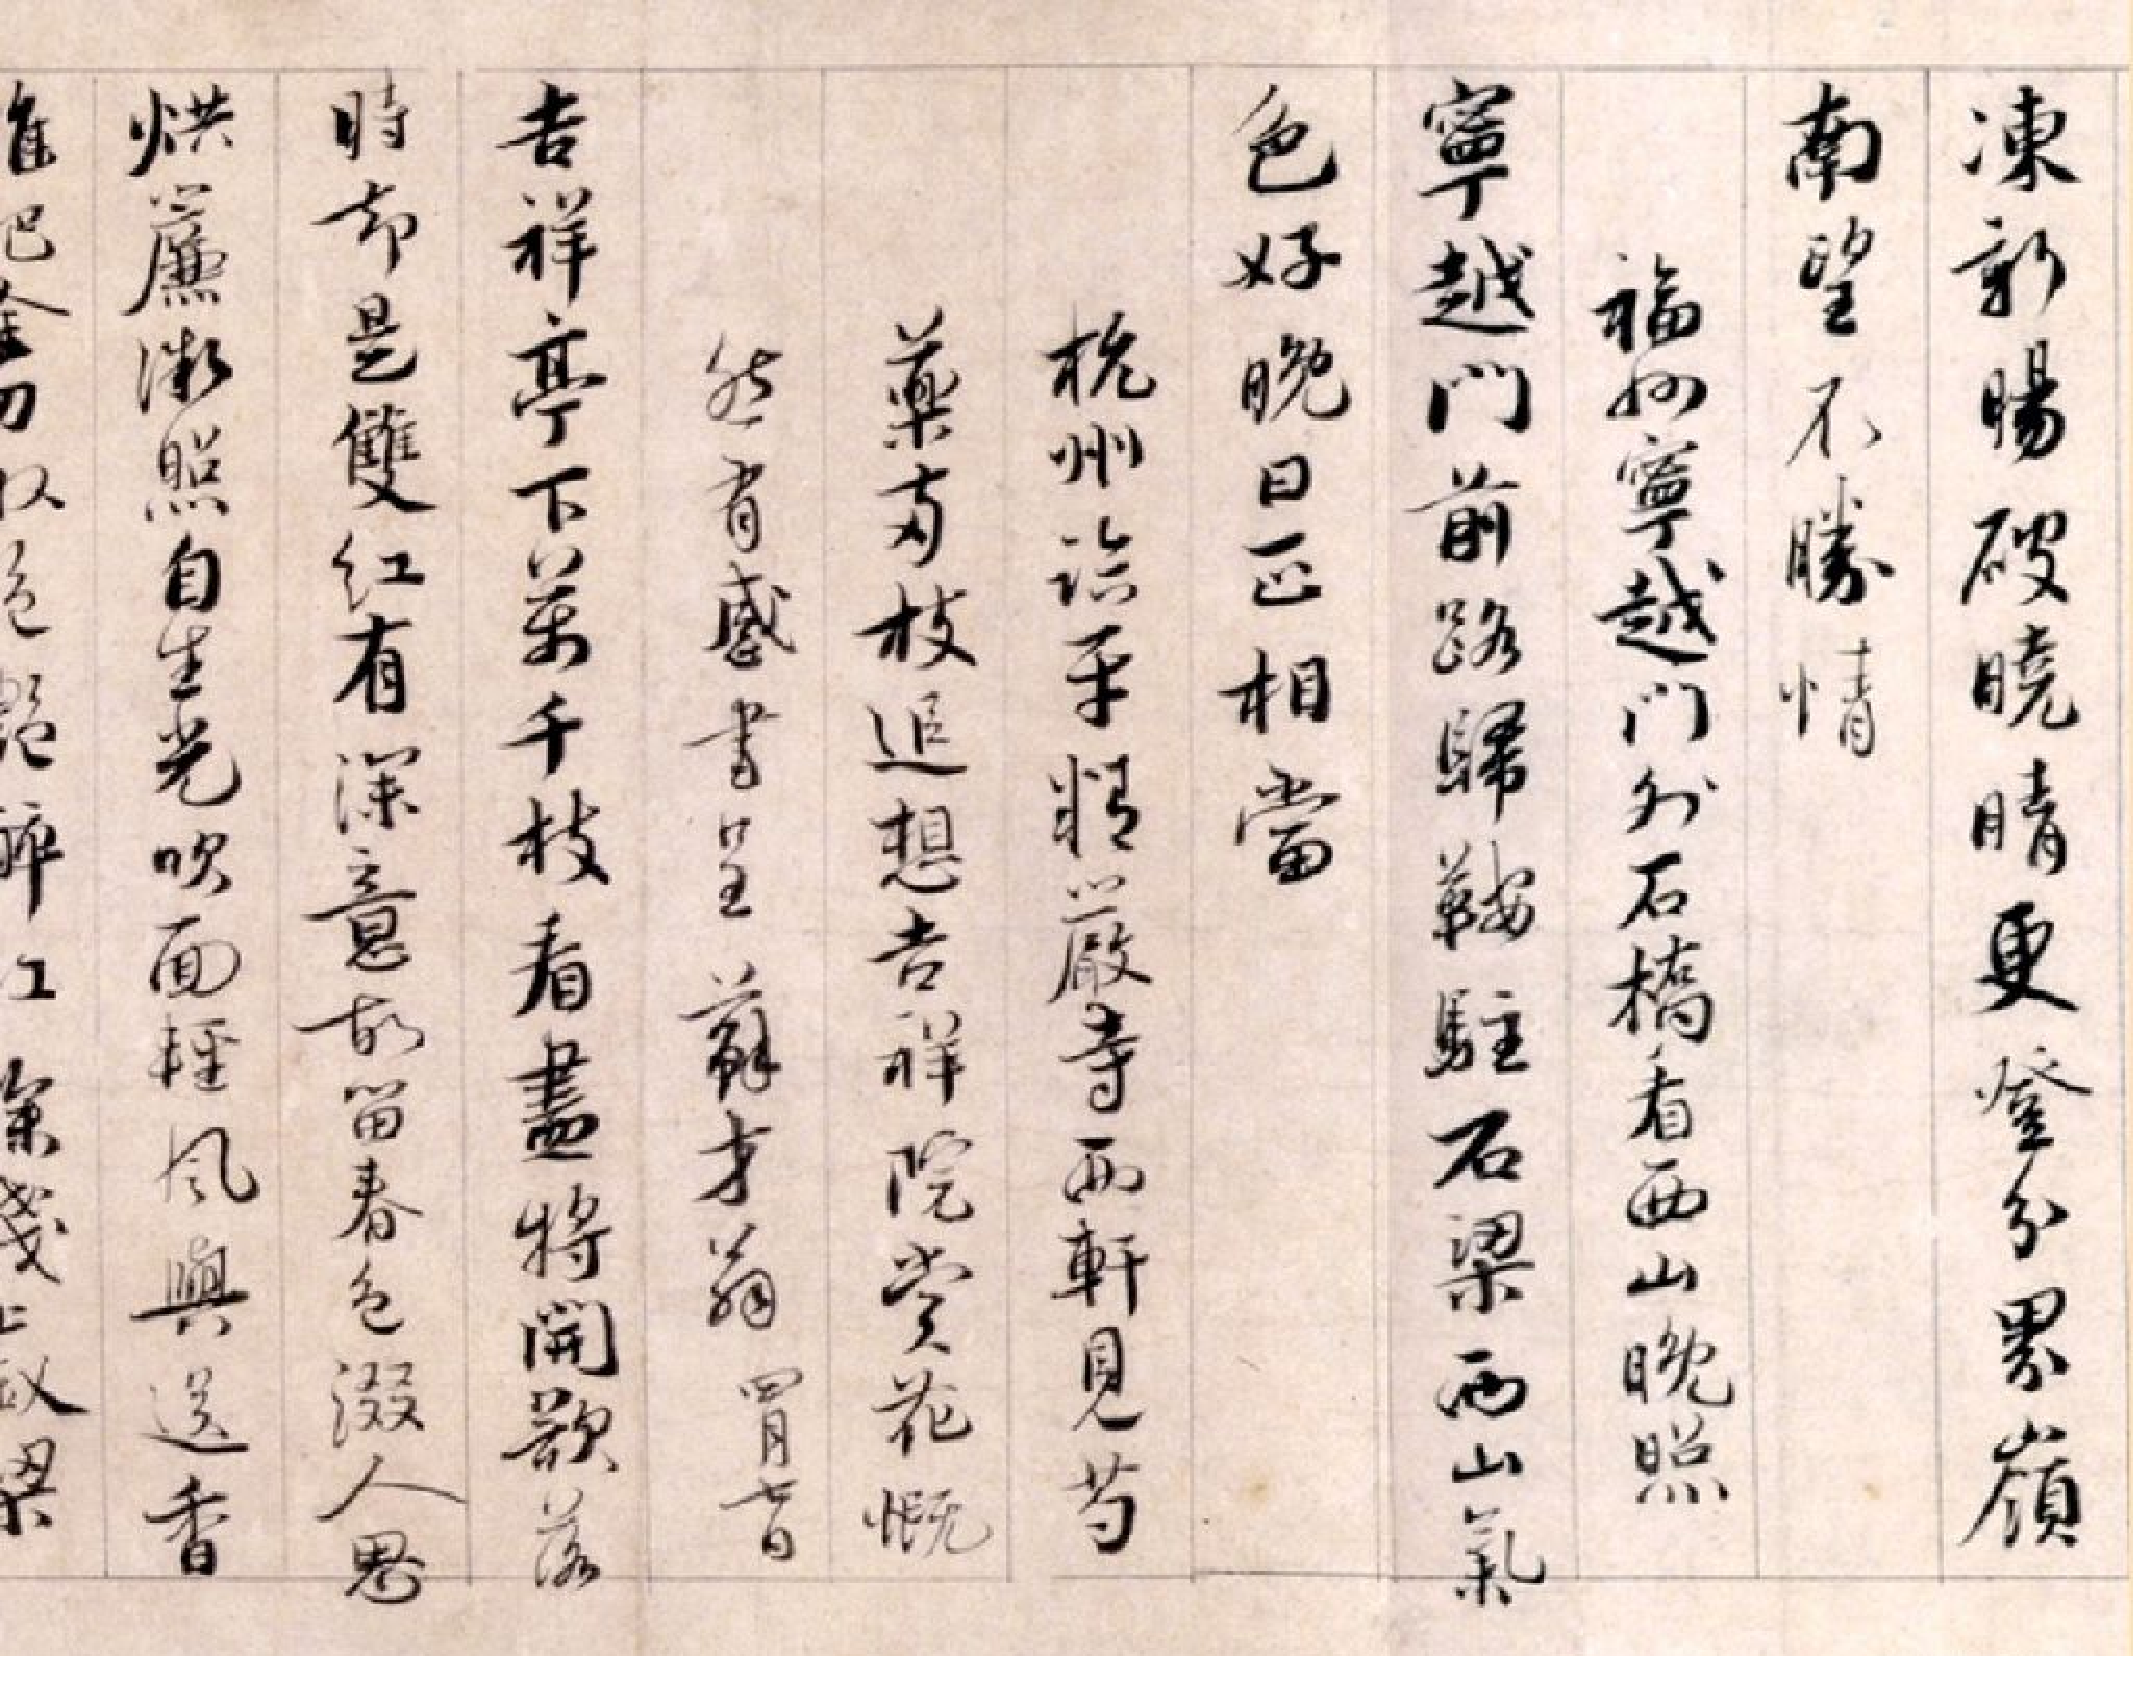 凍新暘破曉晴更登分界嶺
南望不勝情
福州寧越門外石橋看西山晚照
寧越門前路歸鞍駐石梁西山氣
色好晚日正相當
杭州臨平精嚴寺西軒見芍
藥兩枝追想吉祥院賞花慨
然有感書呈蘇才翁四月七日
吉祥亭下萬千枝看盡將開欲落
時却是雙紅有深意故留春色綴人思
烘簾微照自生光吹面輕風與送香